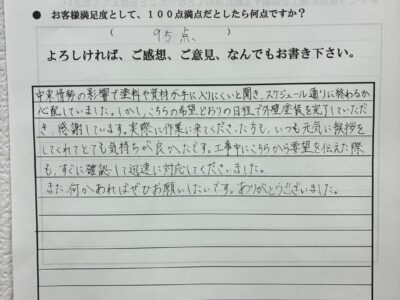 ● お客様満足度として、100点満点だとしたら何点ですか？
（ 95点、 ）
よろしければ、ご感想、ご意見、なんでもお書き下さい。
中東情勢の影響で塗料や資材が手に入りにくいと聞き、スケジュール通りに終わるか
心配していました。しかし、こちらの希望どおりの日程で外壁塗装を完了していただ
き、感謝しています。実際に作業に来てくださった方も、いつも元気に挨拶を
してくれてとても気持ちが良かったです。工事中にこちらから要望を伝えた際
も、すぐに確認して迅速に対応してくださいました。
また何かあればぜひお願いしたいです。ありがとうございました。